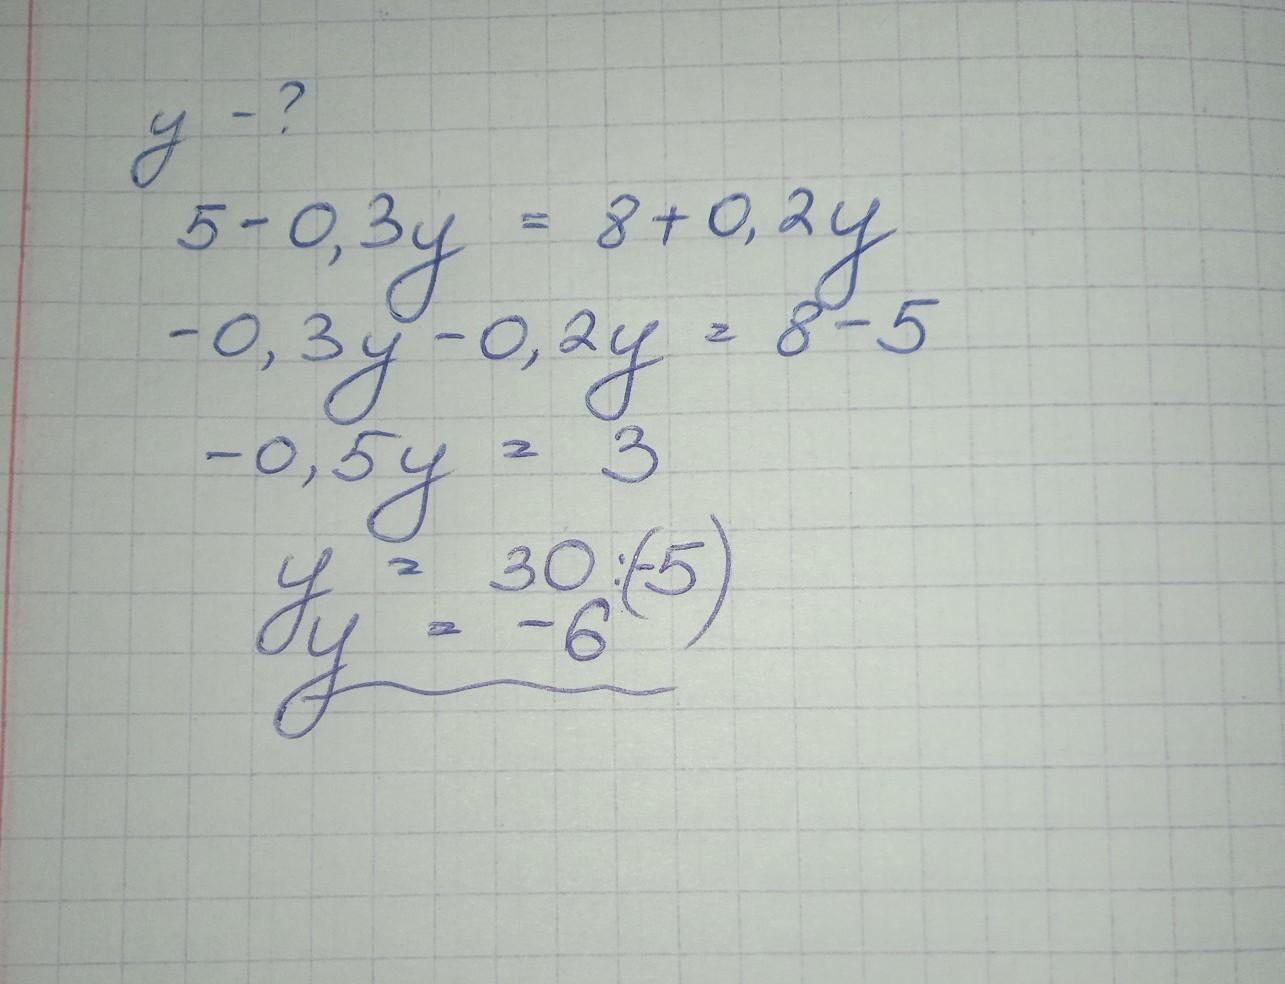 y - ?
5 - 0,3y = 8 + 0,2y
-0,3y - 0,2y = 8 - 5
-0,5y = 3
y = 30 : (-5)
y = -6